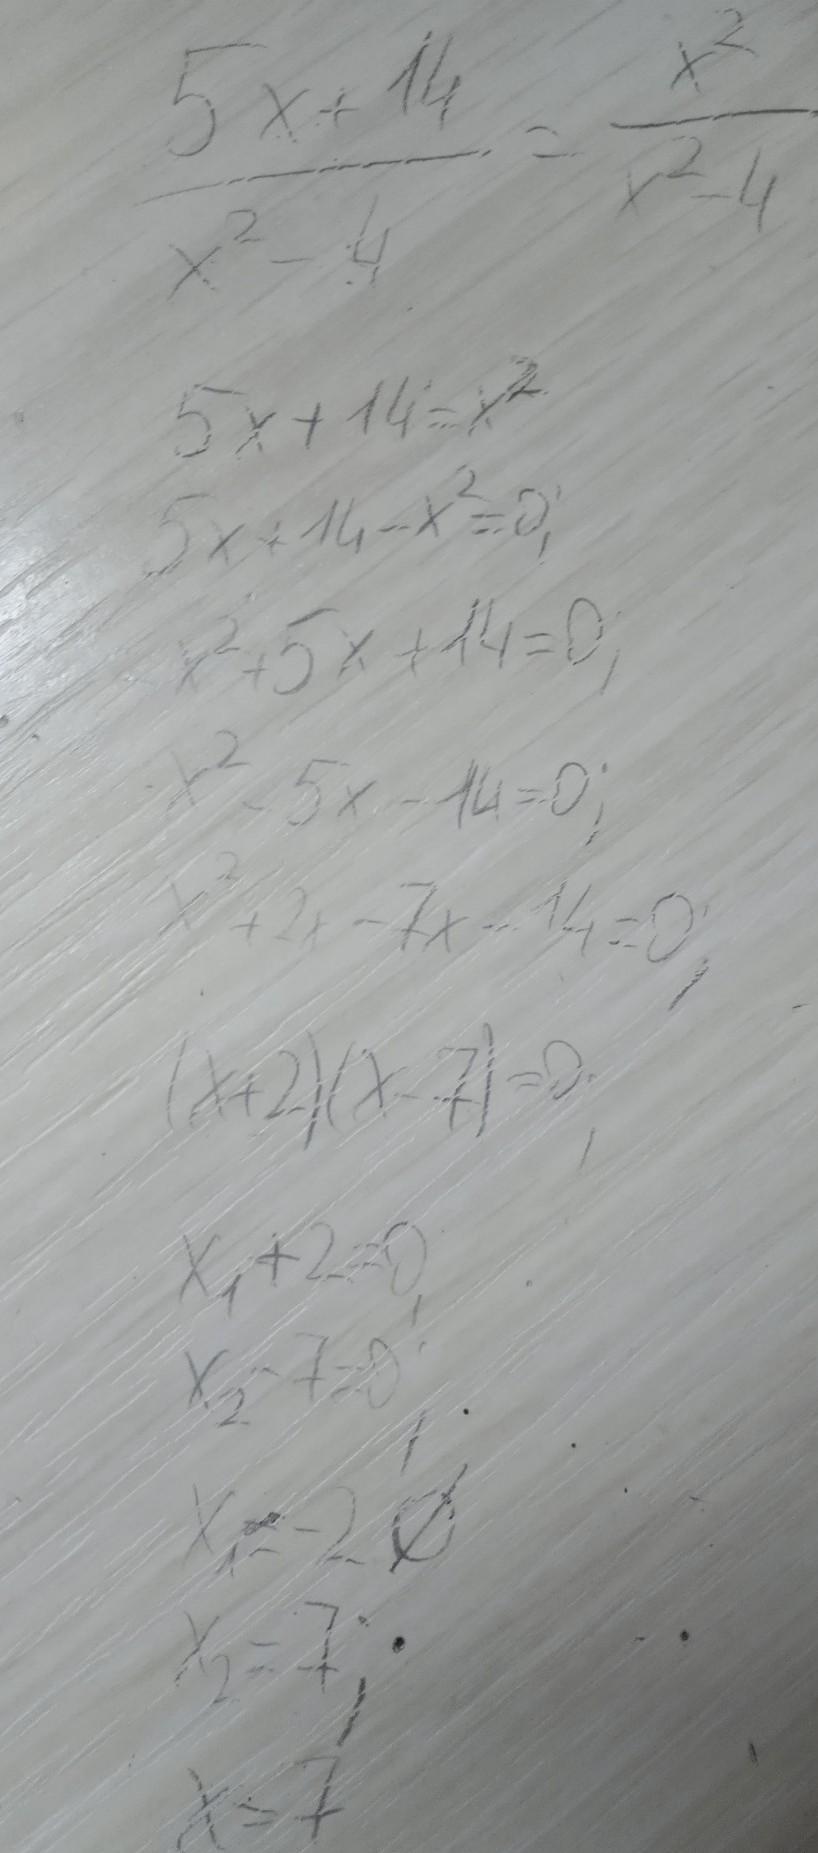 (5x+14)/(x²-4) = x²/(x²-4)
5x+14=x²
5x+14-x²=0;
-x²+5x+14=0;
x²-5x-14=0;
x²+2x-7x-14=0;
(x+2)(x-7)=0;
x₁+2=0;
x₂-7=0;
x₁=-2 Ø
x₂=7;
x=7